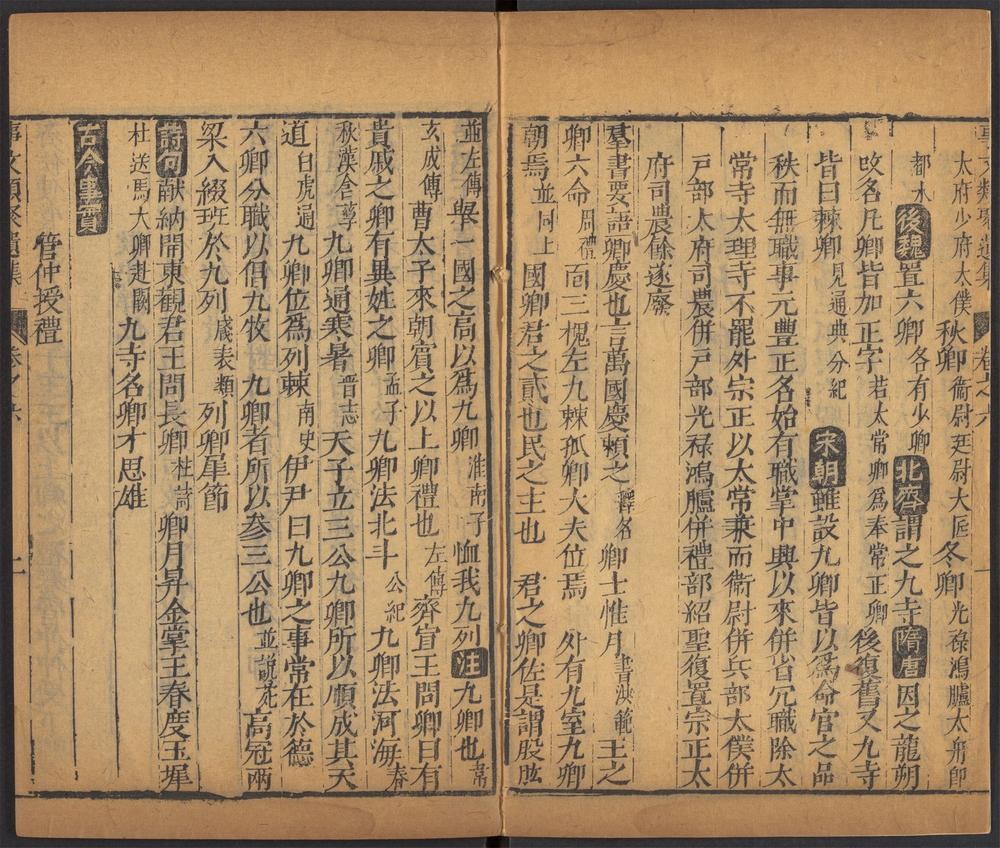 太府少府太僕 秋卿 衞尉廷尉大匠 冬卿 光祿鴻臚太府即
都水 後魏 置六卿 各有少卿 北齊 謂之九寺 隋唐 因之龍朔
改名凡卿皆加正字 若太常卿為奉常正卿 後復舊又九寺
皆曰棘卿 見通典分紀 宋朝 雖設九卿皆以爲命官之品
秩而無職事元豐正名始有職掌中興以來併省冗職除太
常寺太理寺不罷外宗正以太常兼而衞尉併兵部太僕併
戸部太府司農併戸部光祿鴻臚併禮部紹聖復置宗正太
府司農餘遂廢
羣書要語卿慶也言萬國慶頼之 釋名 卿士惟月 書洪範 王之
卿六命 周禮 面三槐左九棘孤卿大夫位焉 外有九室九卿
朝焉 並同上 國卿君之貳也民之主也 君之卿佐是謂股肱
並左傳 舉一國之高以爲九卿 淮南子 恤我九列 注 九卿也 韋
玄成傳 曹太子來朝賓之以上卿禮也 左傳 齊宣王問卿曰有
貴戚之卿有異姓之卿 孟子 九卿法北斗 公紀 九卿法河海 春
秋漢含孳 九卿通寒暑 晋志 天子立三公九卿所以順成其天
道 白虎通 九卿位爲列棘 南史 伊尹曰九卿之事常在於德
六卿分職以倡九牧 九卿者所以参三公也 並説苑 高冠兩
梁入綴班於九列 歳表類 列卿星節
詩句 献納開東観君王問長卿 杜詩 卿月昇金掌王春度玉墀
杜送馬大卿赴闕 九寺名卿才思雄
古今事實
管仲授禮
事文類聚遺集 卷之六 二